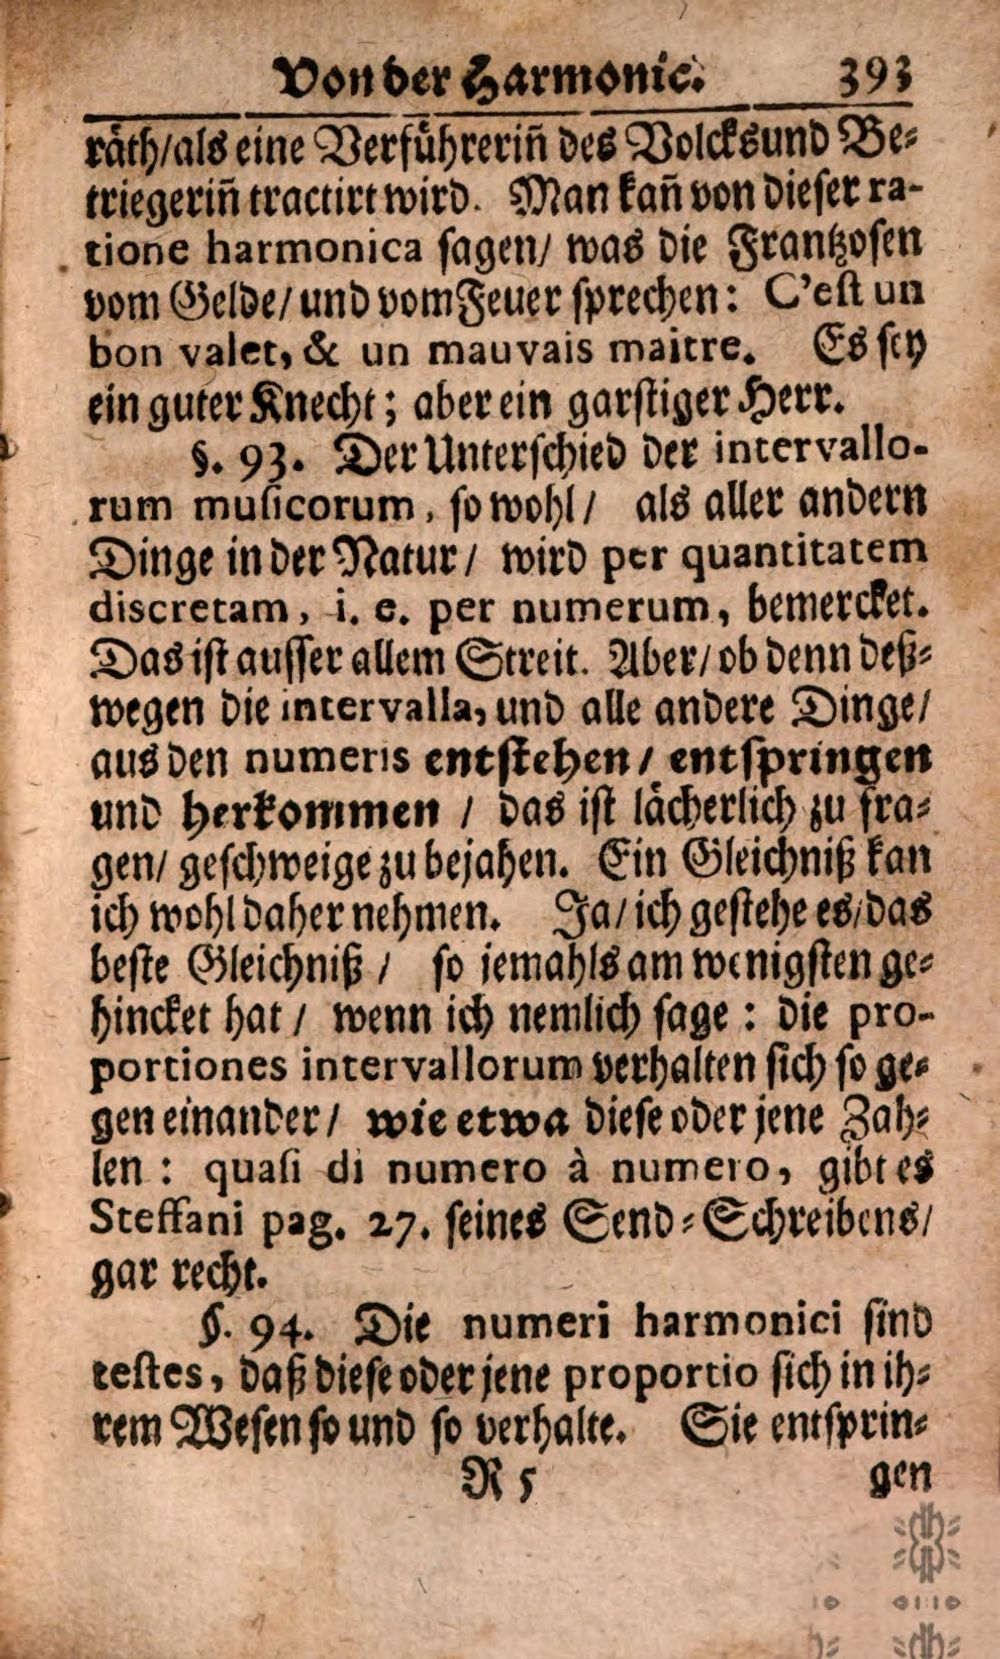 Von der Harmonie. 393
räth/ als eine Verführerin̄ des Volcks und Be-
triegerin̄ tractirt wird. Man kan̄ von dieser ra-
tione harmonica sagen/ was die Frantzosen
vom Gelde/ und vom Feuer sprechen: C'est un
bon valet, & un mauvais maitre. Es sey
ein guter Knecht; aber ein garstiger Herr.
§. 93. Der Unterschied der intervallo-
rum musicorum, so wohl/ als aller andern
Dinge in der Natur/ wird per quantitatem
discretam, i. e. per numerum, bemercket.
Das ist ausser allem Streit. Aber/ ob denn deß-
wegen die intervalla, und alle andere Dinge/
aus den numeris entstehen/ entspringen
und herkommen / das ist lächerlich zu fra-
gen/ geschweige zu bejahen. Ein Gleichniß kan
ich wohl daher nehmen. Ja/ ich gestehe es/ das
beste Gleichniß / so jemahls am wenigsten ge-
hincket hat / wenn ich nemlich sage : die pro-
portiones intervallorum verhalten sich so ge-
gen einander/ wie etwa diese oder jene Zah-
len : quasi di numero à numero, gibt es
Steffani pag. 27. seines Send-Schreibens/
gar recht.
§. 94. Die numeri harmonici sind
testes, daß diese oder jene proportio sich in ih-
rem Wesen so und so verhalte. Sie entsprin-
R 5 gen